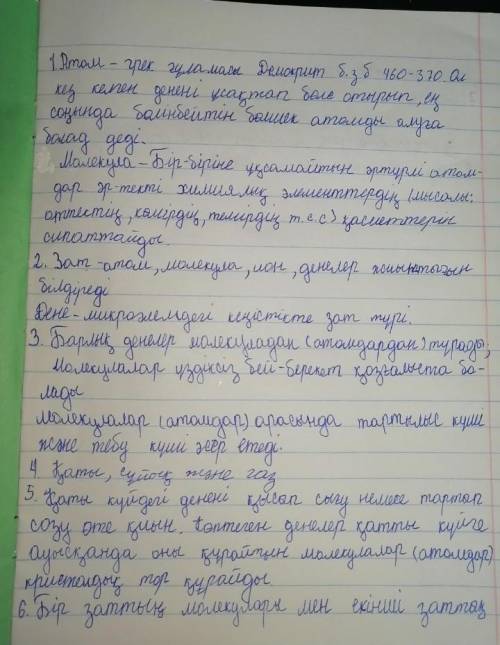 1. Атом – грек ғұламасы Демокрит б.з.б 460-370. Ол
кез келген денені ұсақтап бөле отырып, ең
соңында бөлінбейтін бөлшек атомды алуға
болад деді.
Молекула – Бір-біріне ұқсамайтын әртүрлі атом-
дар әр-текті химиялық элементтердің (мысалы:
оттектің, көмірдің, темірдің т.с.с) қасиеттерін
сипаттайды.
2. Зат - атом, молекула, ион, денелер жиынтығын
білдіреді
Дене - микроәлемдегі кеңістікте зат түрі.
3. Барлық денелер молекуладан (атомдардан) тұрады;
Молекулалар үздіксіз бей-берекет қозғалыста бо-
лады
Молекулалар (атомдар) арасында тартылыс күші
және тебу күші әсер етеді.
4. Қатты, сұйық және газ
5. Қатты күйдегі денені қысып сығу немесе тартып
созу өте қиын. Көптеген денелер қатты күйге
ауысқанда оны құрайтын молекулалар (атомдар)
кристалдық тор құрайды
6. Бір заттың молекулары мен екінші заттың